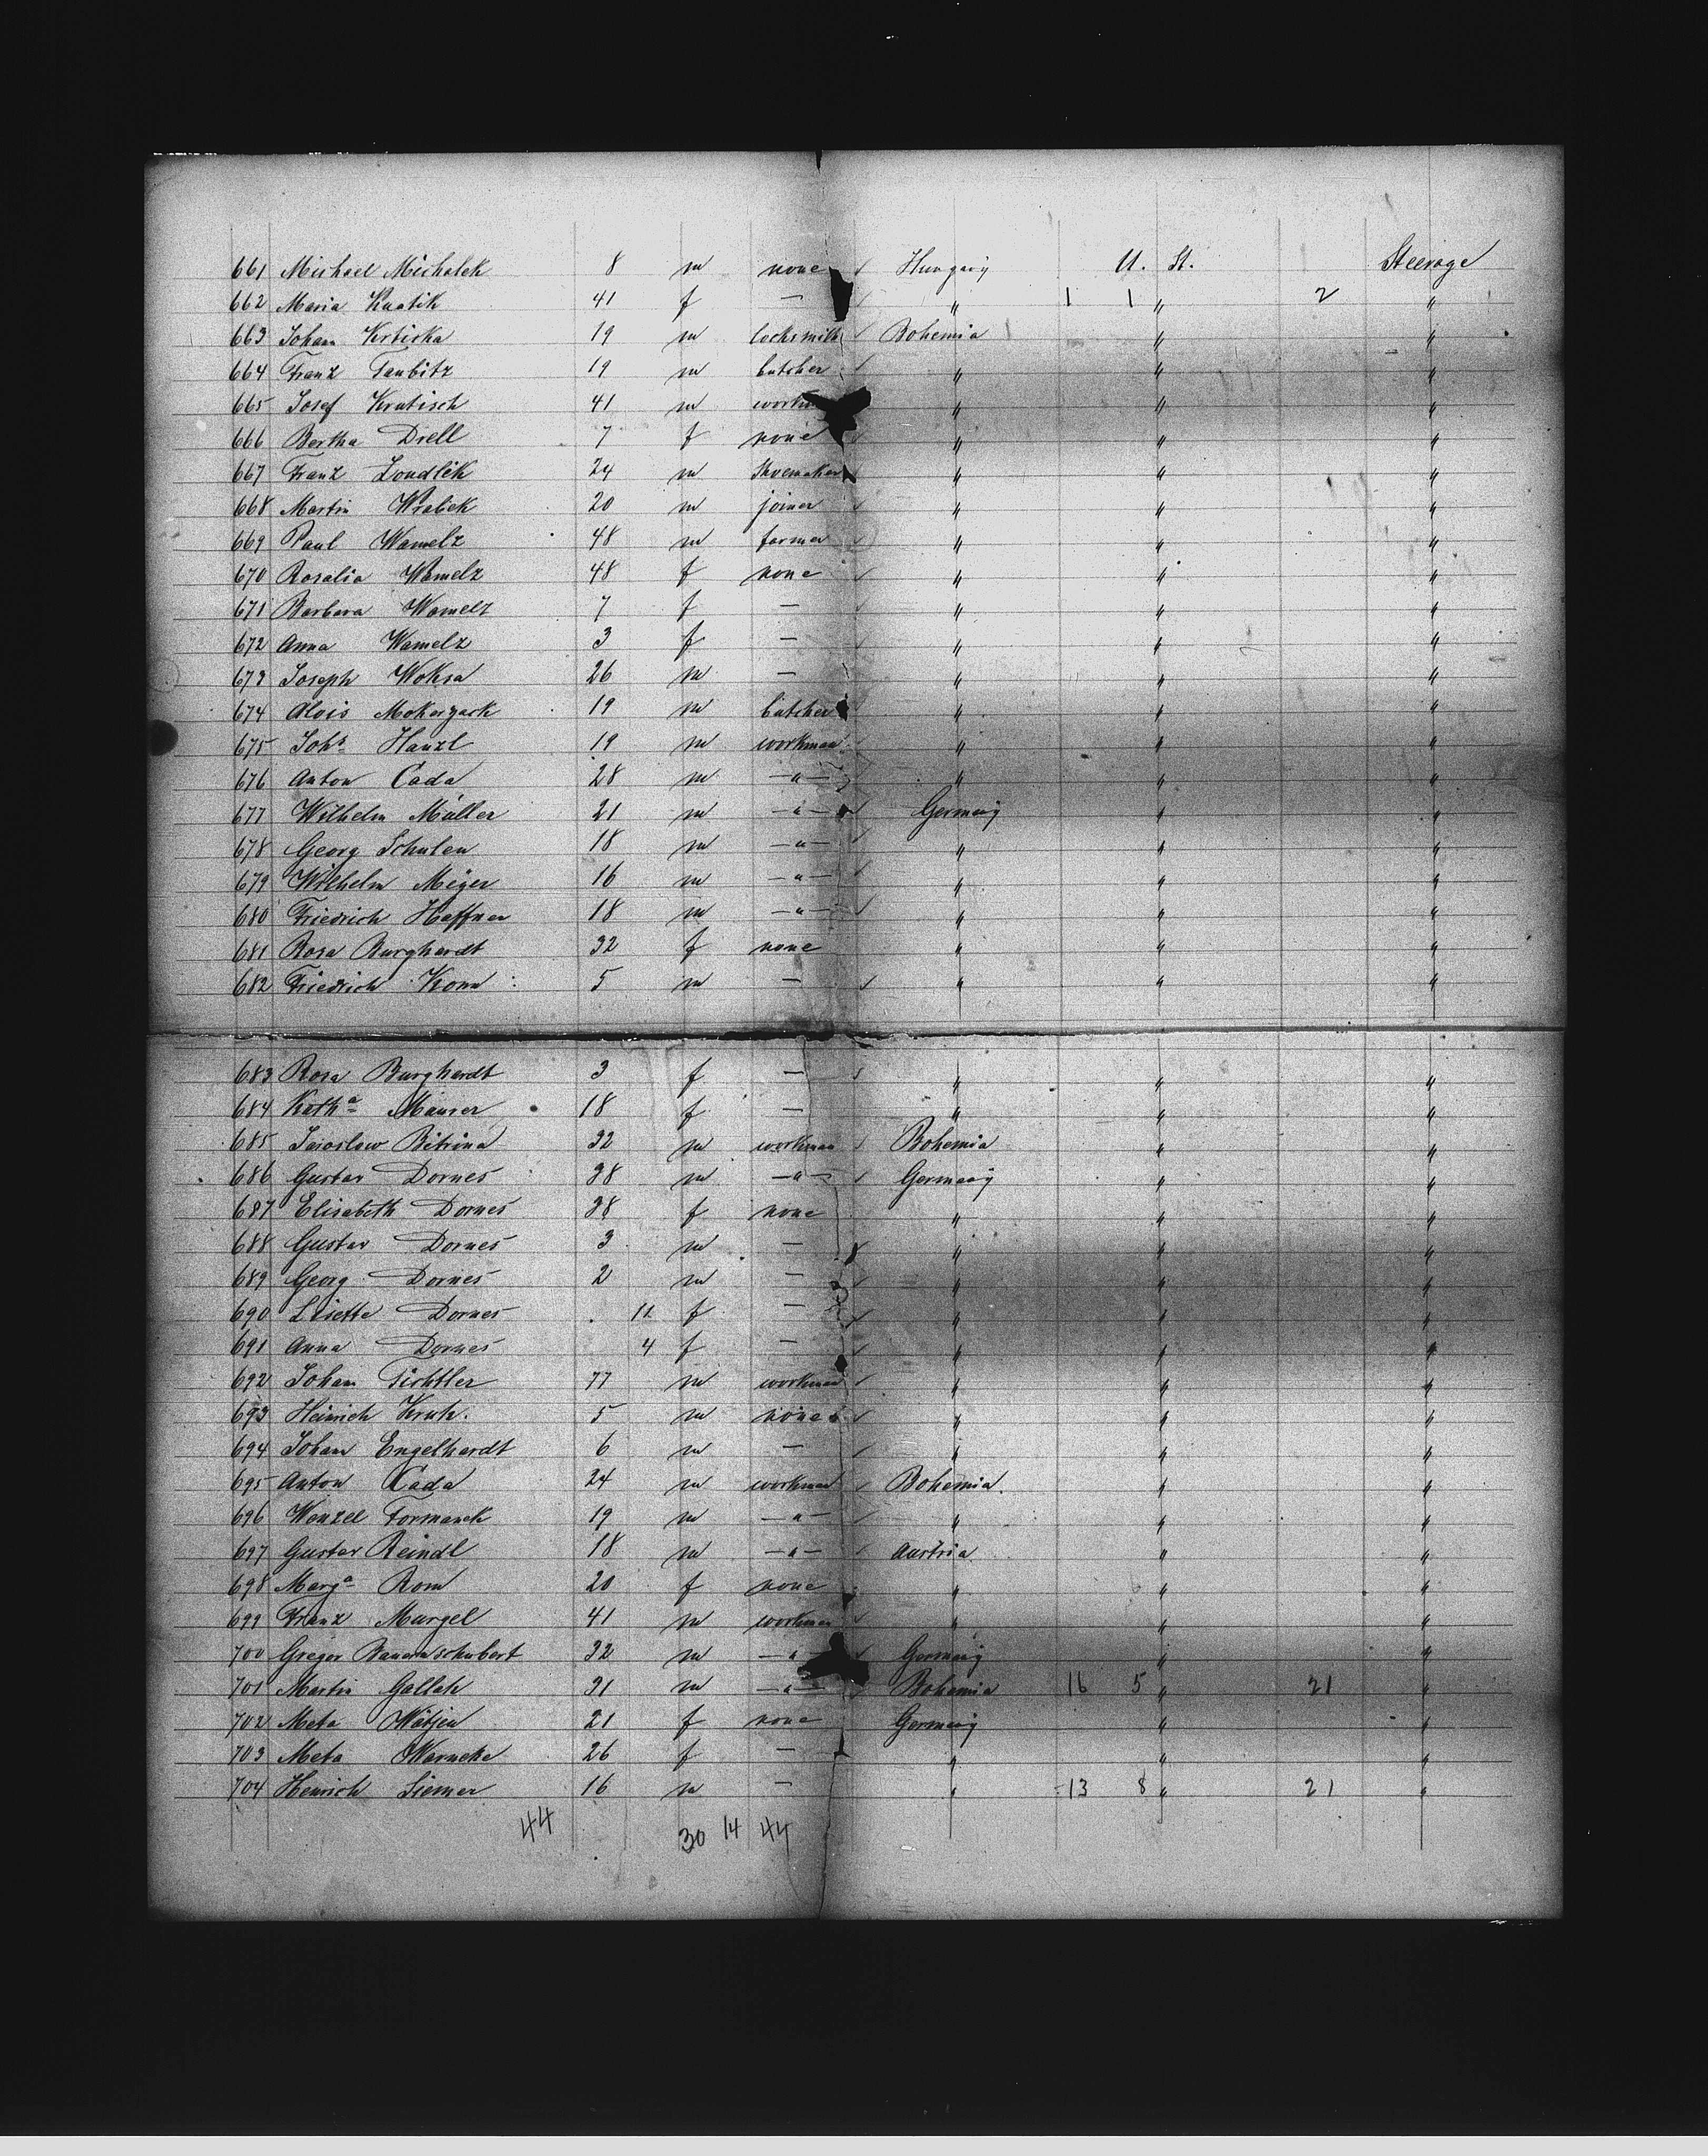 661 Michael Michalek 8 m none Hungary U. St. Steerage
662 Maria Knatik 41 f — " 1 1 " 2 "
663 Johann Krticka 19 m locksmith Bohemia " "
664 Franz Taubitz 19 m butcher " " "
665 Josef Kratisch 41 m workm " " "
666 Bertha Drell 7 f none " " "
667 Franz Loudlik 24 m Shoemaker " " "
668 Martin Wrabek 20 m joiner " " "
669 Paul Wamelz 48 m farmer " " "
670 Rosalia Wamelz 48 f none " " "
671 Barbara Wamelz 7 f — " " "
672 Anna Wamelz 3 f — " " "
673 Joseph Woksa 26 m — " " "
674 Alois Mokerzack 19 m butcher " " "
675 Johs Hanzl 19 m workman " " "
676 Anton Cada 28 m —"— " " "
677 Wilhelm Müller 21 m —"— Germany " "
678 Georg Schulen 18 m —"— " " "
679 Wilhelm Meyer 16 m —"— " " "
680 Friedrich Haffner 18 m —"— " " "
681 Rosa Burghardt 32 f none " " "
682 Friedrich Konn 5 m — " " "
683 Rosa Burghardt 3 f — " " "
684 Katha Mauser 18 f — " " "
685 Jaroslow Bitrina 32 m workman Bohemia " "
686 Gustav Dornes 38 m —"— Germany " "
687 Elisabeth Dornes 38 f none " " "
688 Gustav Dornes 3 m — " " "
689 Georg Dornes 2 m — " " "
690 Lisette Dornes 11 f — " " "
691 Anna Dornes 4 f — " " "
692 Johann Tichtler 77 m workman " " "
693 Heinrich Kruh. 5 m none " " "
694 Johann Engelhardt 6 m — " " "
695 Anton Cada 24 m workman Bohemia. " "
696 Wenzel Formanek 19 m —"— " " "
697 Gustav Reindl 18 m —"— Austria " "
698 Marga Rom 20 f none " " "
699 Franz Murgel 41 m workman " " "
700 Gregor Bauernschubert 32 m —" Germany " "
701 Martin Gallah 31 m —"— Bohemia 16 5 " 21 "
702 Meta Wätjen 21 f none Germany " "
703 Meta Warneke 26 f — " " "
704 Heinrich Siemer 16 m — " 13 8 " 21 "
44 30 14 44